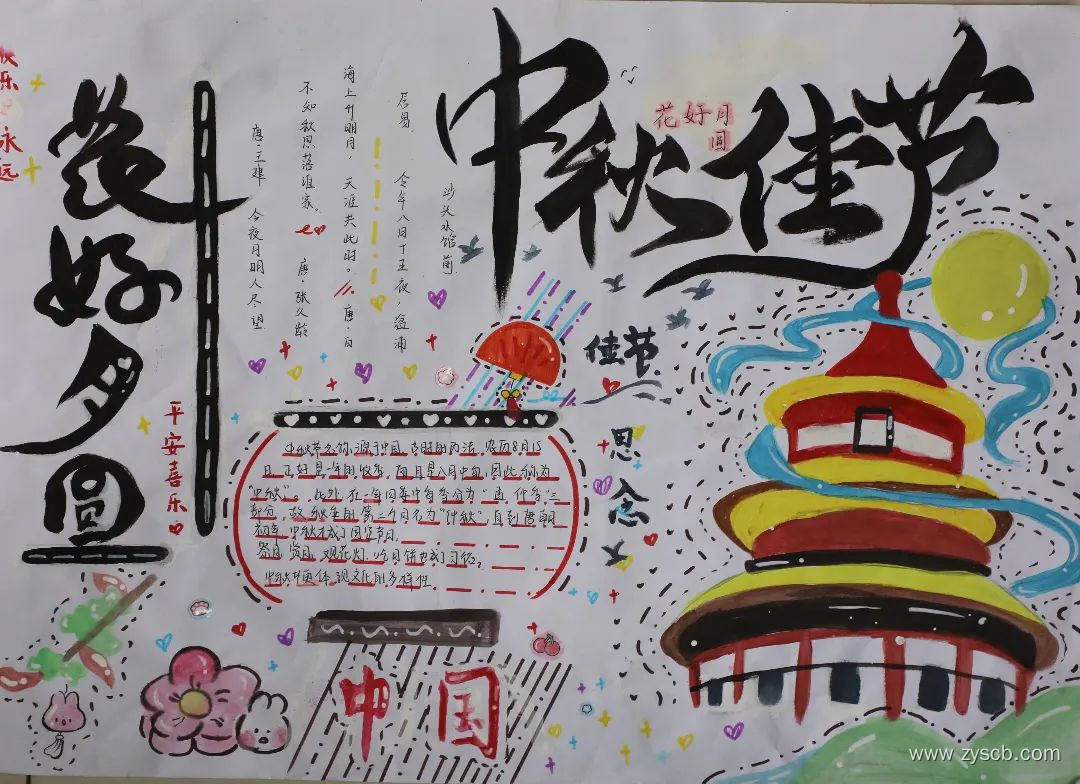 中秋佳节
花好月
圆
快乐
永远
花好月圆
平安喜乐
居易
今年八月十五夜，湓浦
沙头水馆前
海上升明月，天涯共此时。唐·白
不知秋思落谁家。 唐·张九龄
唐·王建 今夜月明人尽望
佳节
思念
中秋节名称源于中国，古时的历法，农历8月15
日，正好是一年的秋季，而且是八月中旬，因此称为
"中秋"。此外，在一年四季中每季分为"孟、仲、季"三
部分，故秋季的第二个月名为"仲秋"，直到唐朝
初年，中秋才成了固定节日。
祭月、赏月、观花灯、吃月饼也成了习俗。
中秋节更体现文化的多样性
中国
www.zyscb.com